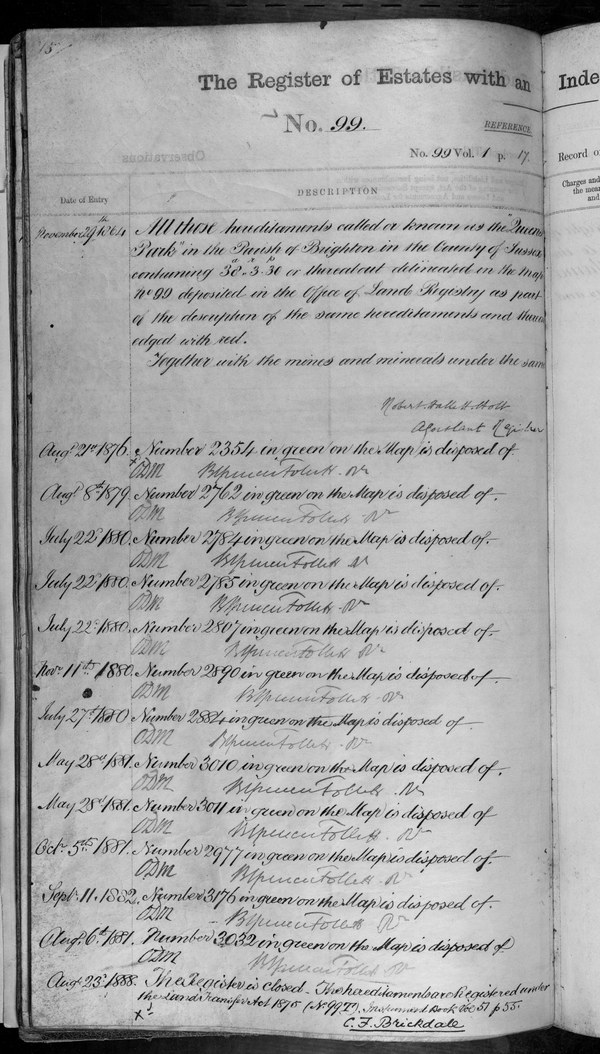 15
The Register of Estates with an
Inde
No. 99.
REFERENCE.
No. 99 Vol. 1 p. 17.
Observations
Record o
DESCRIPTION
Charges and
the mean
and
Date of Entry
November 29th 1864
All those hereditaments called or known as the "Queens
Park" in the Parish of Brighton in the County of Sussex
containing 38a 3r 30p or thereabout delineated in the Map
No 99 deposited in the Office of Land Registry as part
of the description of the same hereditaments and thereon
edged with red.
Together with the mines and minerals under the same
Robert Hallett Holt
Assistant Registrar
Augt 21st 1876. Number 2354 in green on the Map is disposed of
ODM B Spencer Follett Rr
Augt 8th 1879. Number 2762 in green on the Map is disposed of.
ODM B Spencer Follett Rr
July 22d 1880. Number 2784 in green on the Map is disposed of.
ODM B Spencer Follett Rr
July 22d 1880. Number 2785 in green on the Map is disposed of.
ODM B Spencer Follett Rr
July 22d 1880. Number 2807 in green on the Map is disposed of.
ODM B Spencer Follett Rr
Novr 11th 1880. Number 2890 in green on the Map is disposed of.
ODM B Spencer Follett Rr
July 27th 1880 Number 2884 in green on the Map is disposed of.
ODM B Spencer Follett Rr
May 28th 1881. Number 3010 in green on the Map is disposed of.
ODM B Spencer Follett Rr
May 28th 1881. Number 3011 in green on the Map is disposed of
ODM B Spencer Follett Rr
Octr 5th 1881. Number 2977 in green on the Map is disposed of
ODM B Spencer Follett Rr
Septr 11. 1882. Number 3176 in green on the Map is disposed of.
ODM B Spencer Follett Rr
Augt 6th 1881. Number 3032 in green on the Map is disposed of
ODM B Spencer Follett Rr
Augt 23d 1888. The Register is closed. The hereditaments are Registered under
the Land Transfer Act 1875 (No 99T). Instrument Book Vol 51 p 55.
C. F. Brickdale